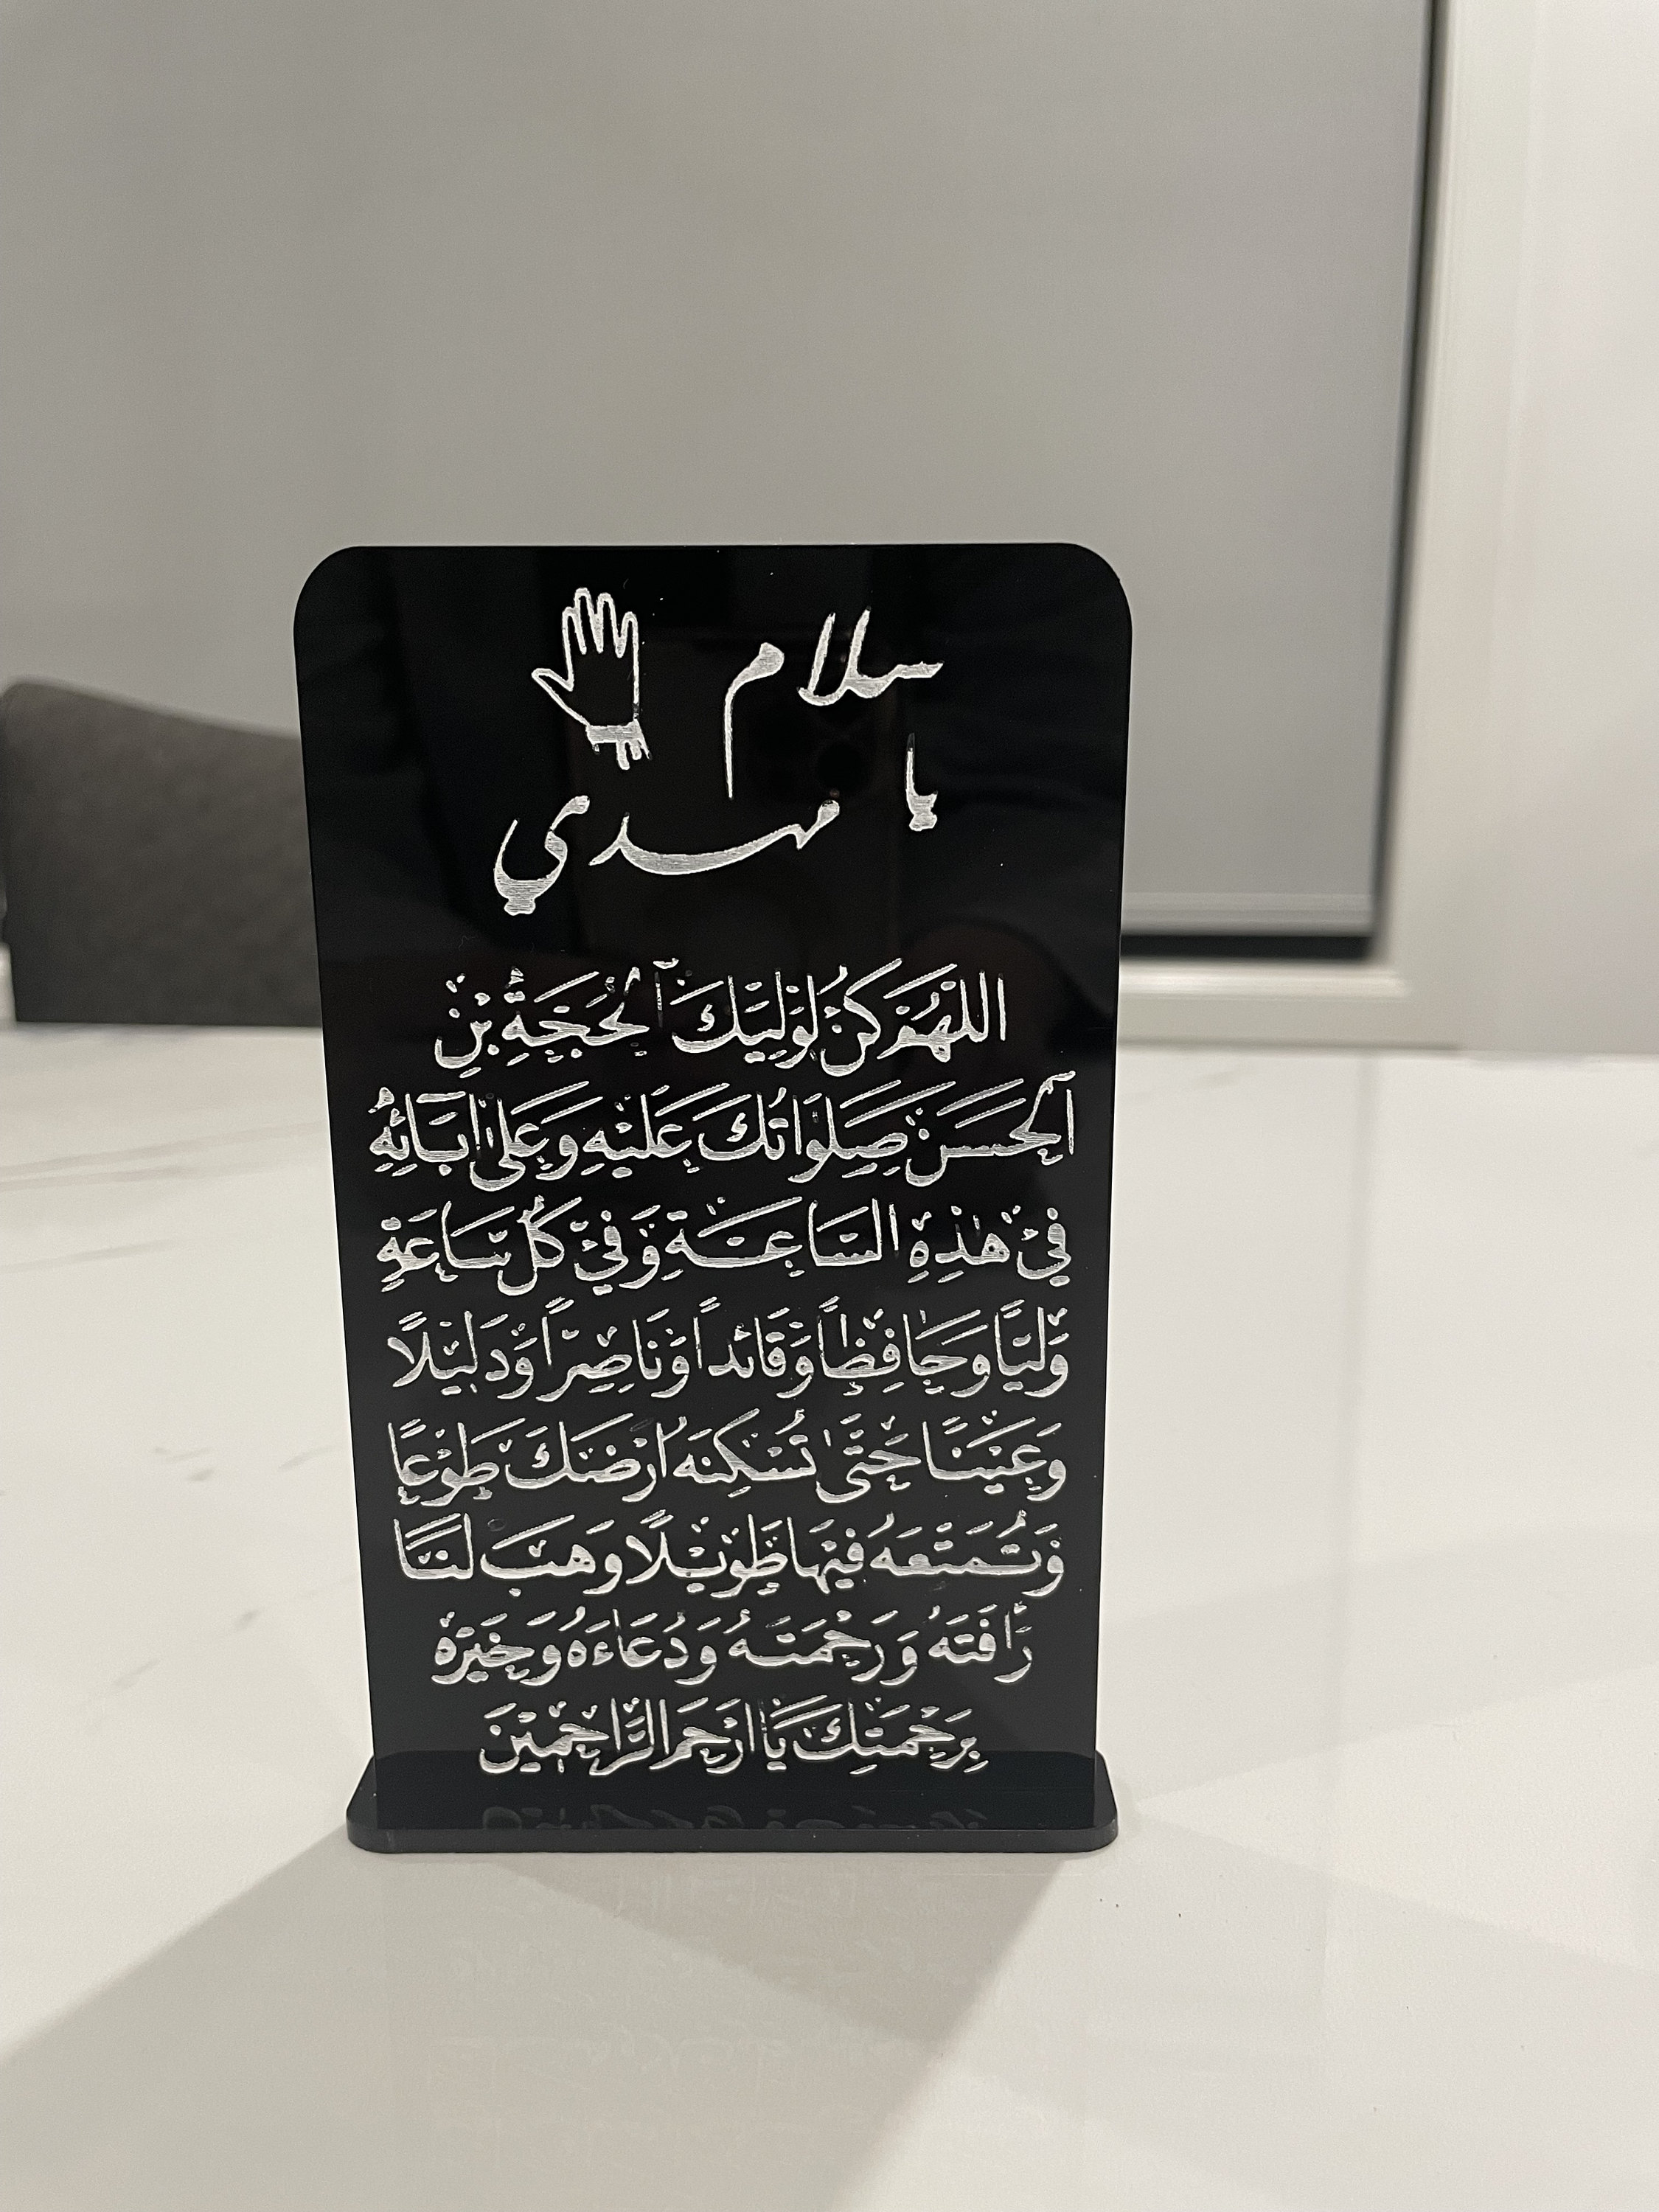 سلام
يا مهدي
اللهُمَّ كُنْ لِوَلِيِّكَ ٱلْحُجَّةِ بْنِ
ٱلْحَسَنْ صَلَوَاتُكَ عَلَيْهِ وَعَلَى اٰبَائِهِ
فِيْ هٰذِهِ السَّاعَةِ وَفِيْ كُلِّ سَاعَةٍ
وَلِيًّا وَحَافِظاً وَقَائداً وَنَاصِراً وَدَلِيْلًا
وَعَيْنًا حَتّٰى تُسْكِنَه اَرْضَكَ طَوْعًا
وَتُمَتِّعَهُ فِيْهَا طَوِيْلًا وَهَبْ لَنَا
رَأْفَتَهُ وَرَحْمَتَهُ وَدُعَاءَهُ وَخَيْرَهُ
بِرَحْمَتِكَ يَا اَرْحَمَ الرَّاحِمِيْنَ